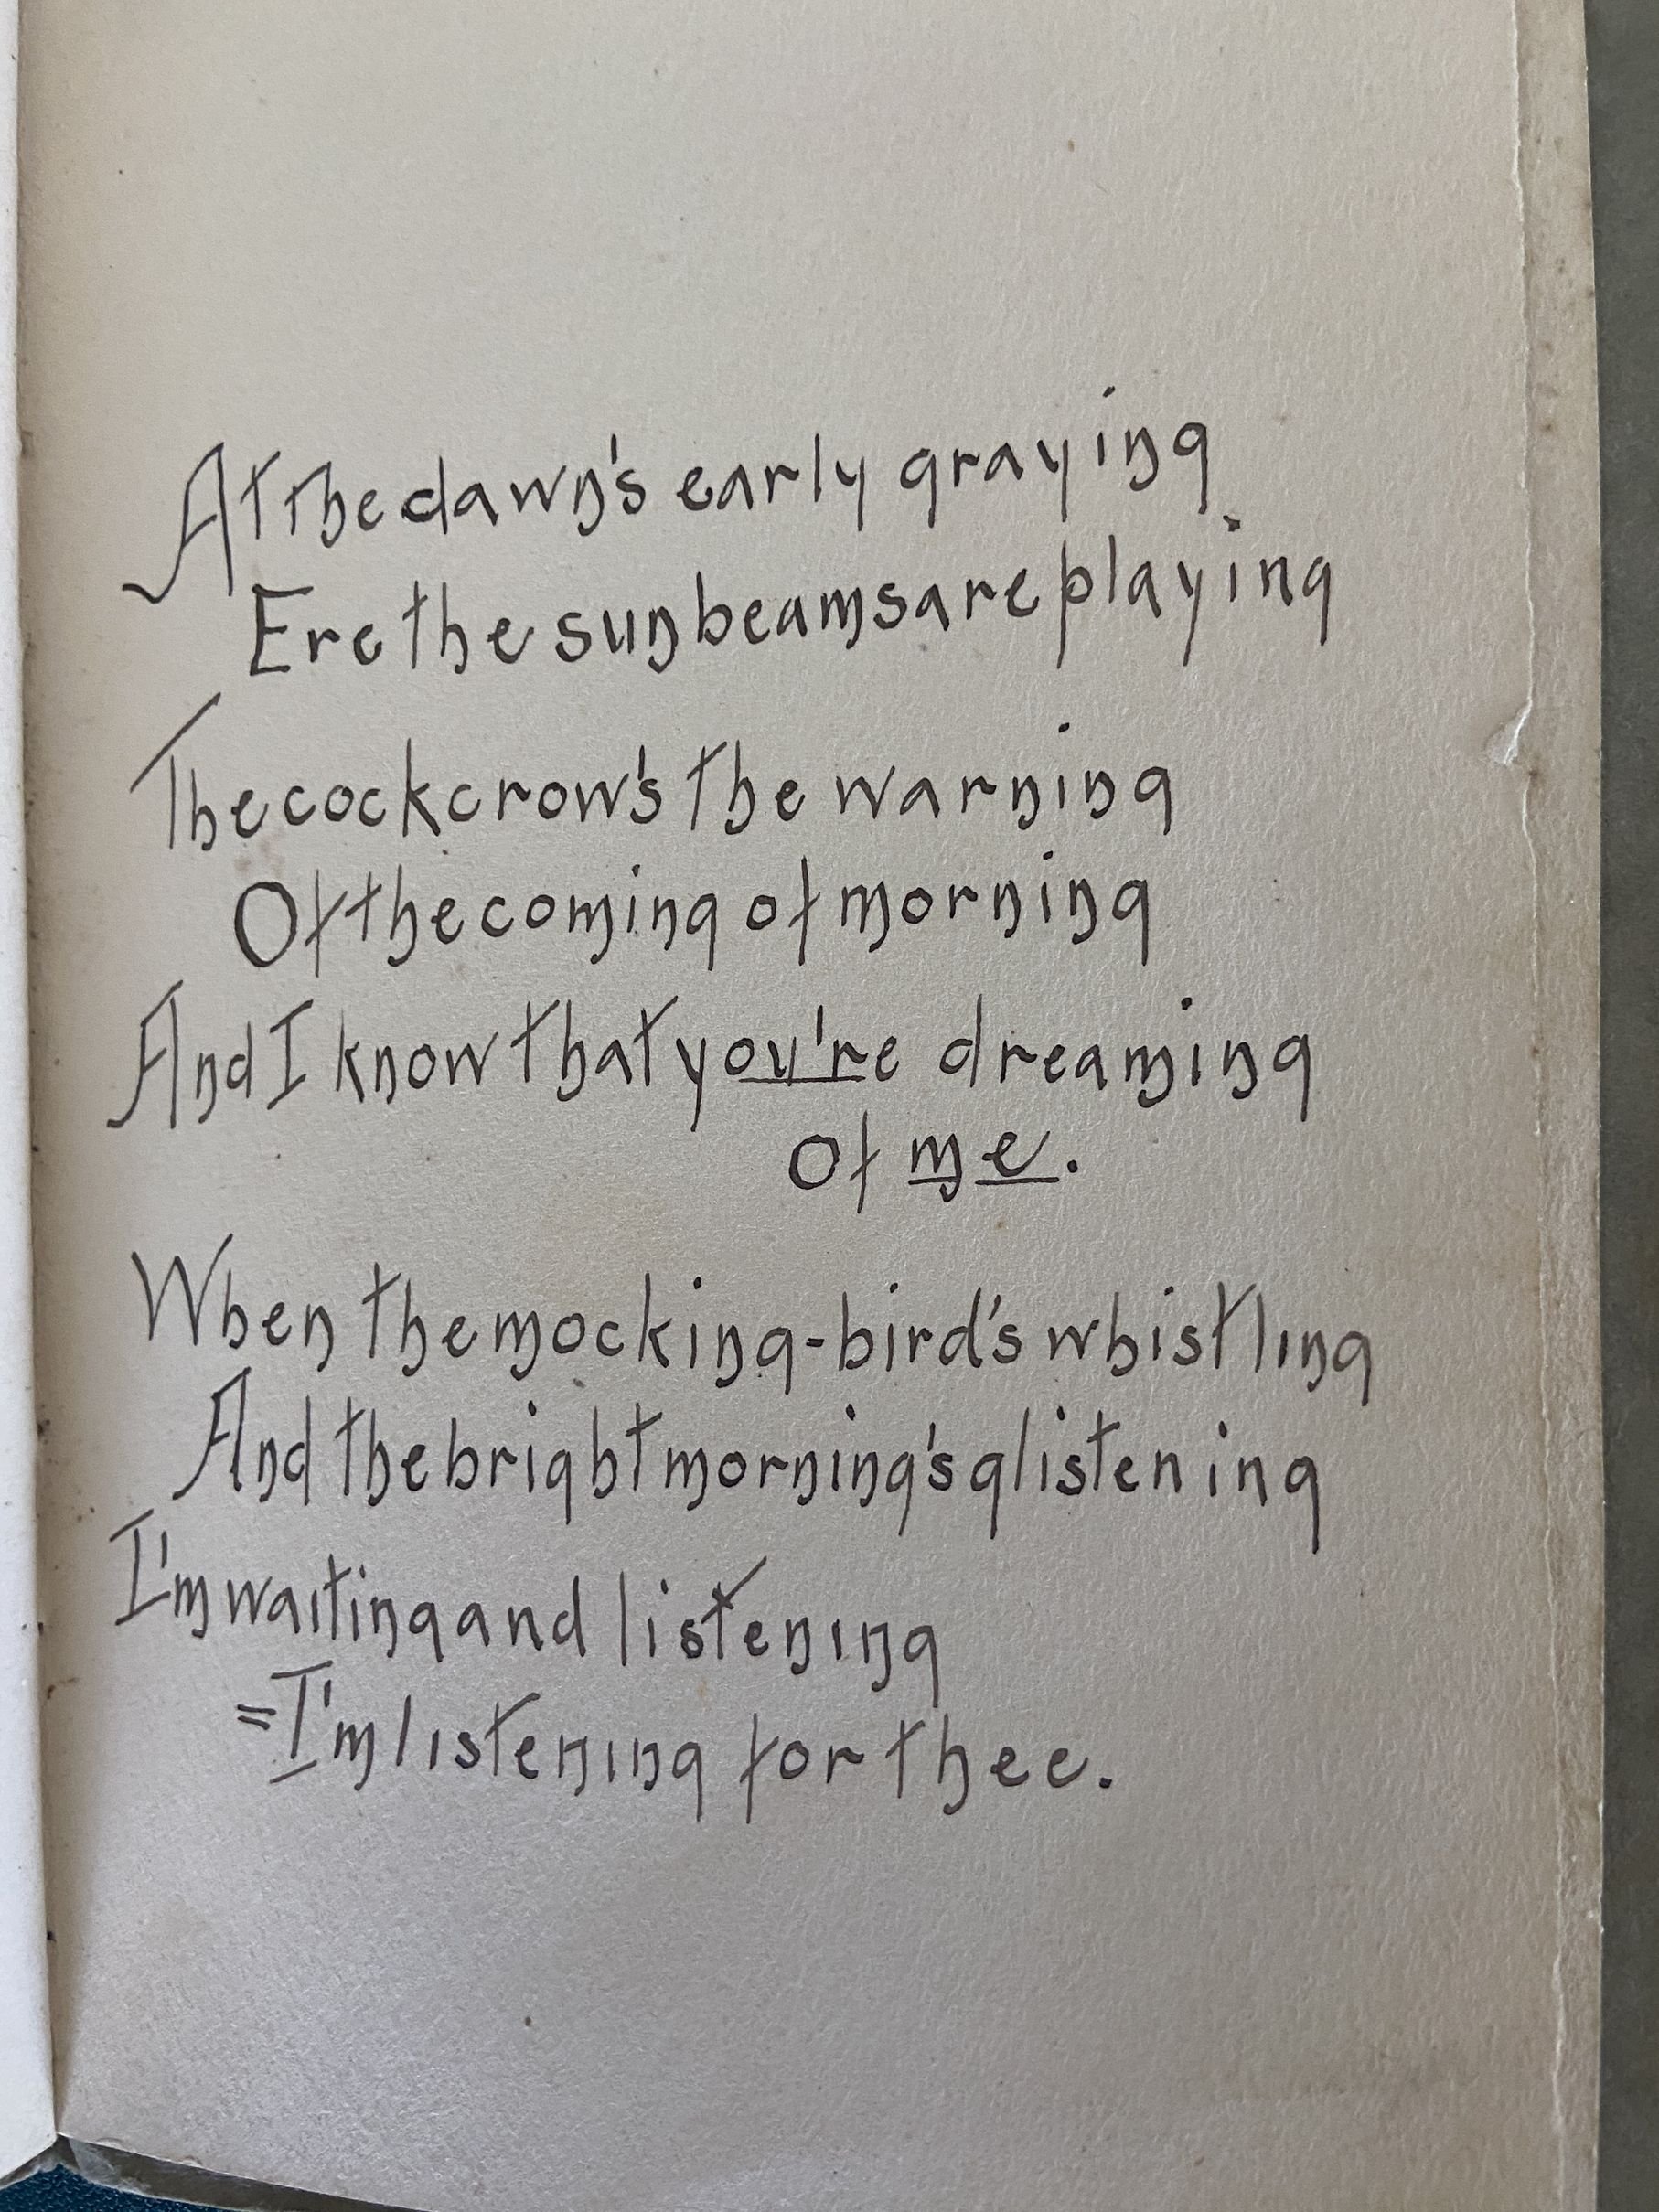 At the dawn's early graying
Ere the sunbeams are playing
The cock crow's the warning
Of the coming of morning
And I know that you're dreaming
of me.
When the mocking-bird's whistling
And the bright morning's glistening
I'm waiting and listening
=I'm listening for thee.